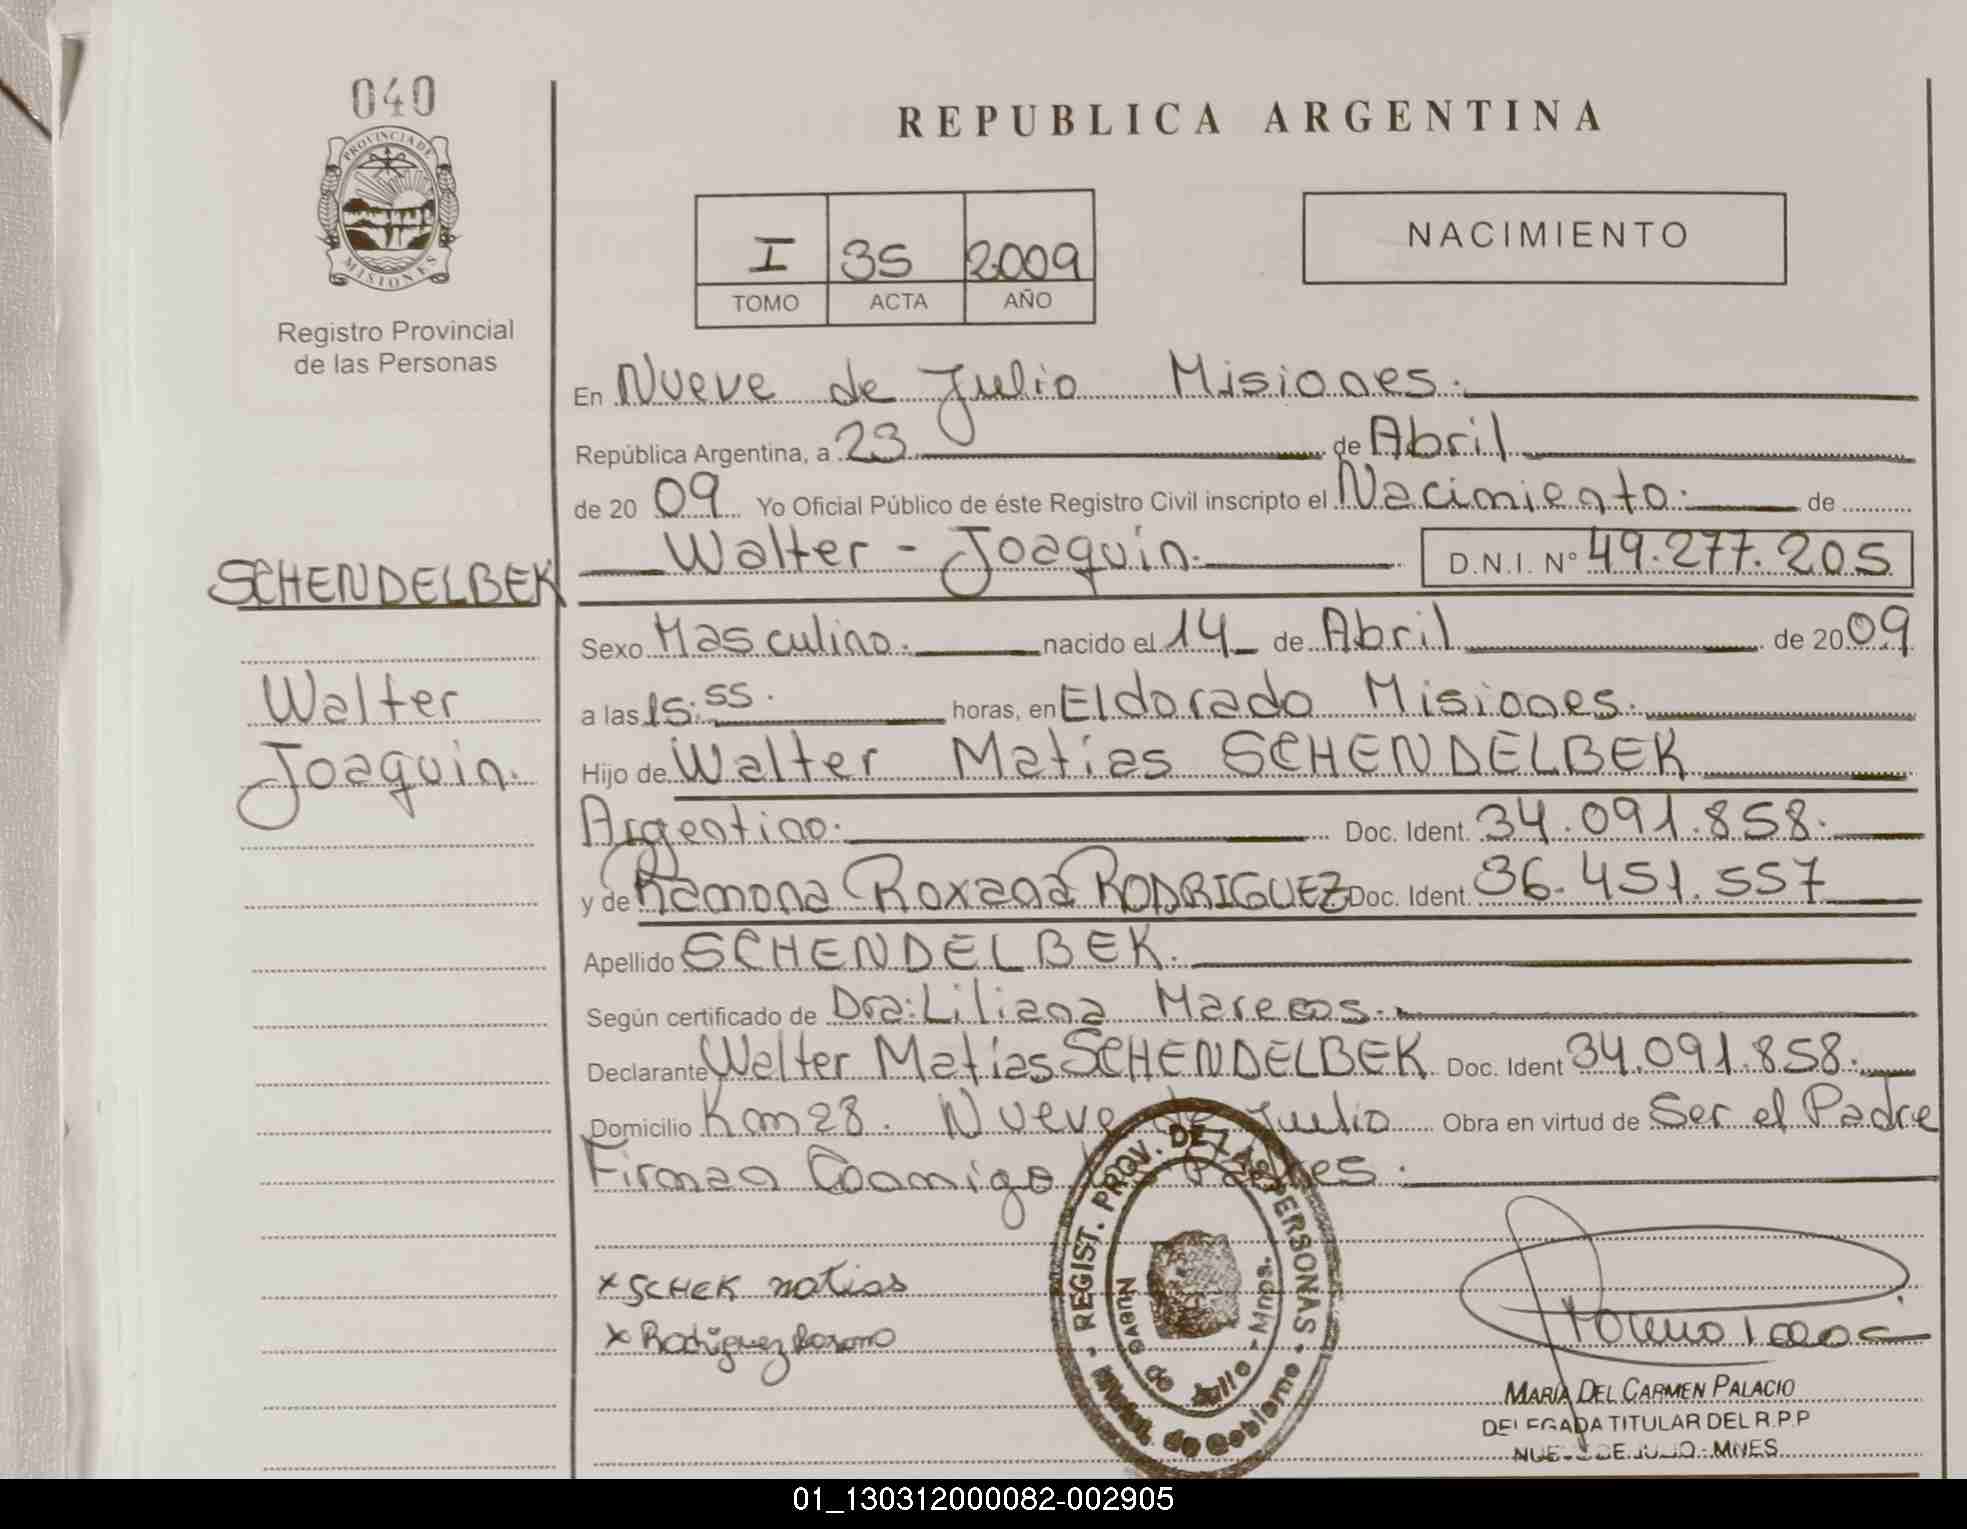 040
PROVINCIA DE
MISIONES
Registro Provincial
de las Personas
REPUBLICA ARGENTINA
I 35 2009
TOMO ACTA AÑO
NACIMIENTO
En Nueve de Julio Misiones.
República Argentina, a 23 de Abril
de 20 09 Yo Oficial Público de éste Registro Civil inscripto el Nacimiento. de
Walter - Joaquin. D.N.I. Nº 49.277.205
SCHENDELBEK
Walter
Joaquin.
Sexo Masculino. nacido el 14 de Abril de 2009
a las 15:55. horas, en Eldorado Misiones.
Hijo de Walter Matías SCHENDELBEK
Argentino. Doc. Ident. 34.091.858.
y de Ramona Roxana RODRIGUEZ Doc. Ident. 36.451.557
Apellido SCHENDELBEK.
Según certificado de Dra: Liliana Marecos.
Declarante Walter Matías SCHENDELBEK Doc. Ident 34.091.858.
Domicilio Km 28. Nueve de Julio Obra en virtud de Ser el Padre
Firman Conmigo Padres.
x SCHEK matias
x Rodriguez
REGIST. PROV. DE LAS PERSONAS
Nueve de Julio - Mnes.
de Gobierno
MARÍA DEL CARMEN PALACIO
DELEGADA TITULAR DEL R.P.P
NUEVE DE JULIO - MNES
01_130312000082-002905